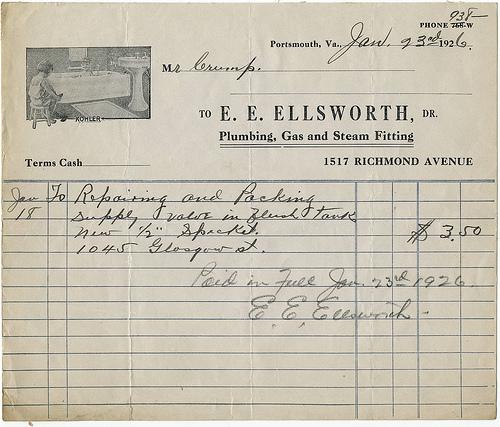 938
PHONE 768-W
Portsmouth, Va., Jan. 23rd 1926.
Mr Crump.
KOHLER
TO E. E. ELLSWORTH, DR.
Plumbing, Gas and Steam Fitting
Terms Cash
1517 RICHMOND AVENUE
Jan To Repairing and Packing
18 Supply valve in Flush Tank
new 1/2" Spacket. $ 3.50
1045 Glasgow st.
Paid in Full Jan. 23rd 1926
E. E. Ellsworth -